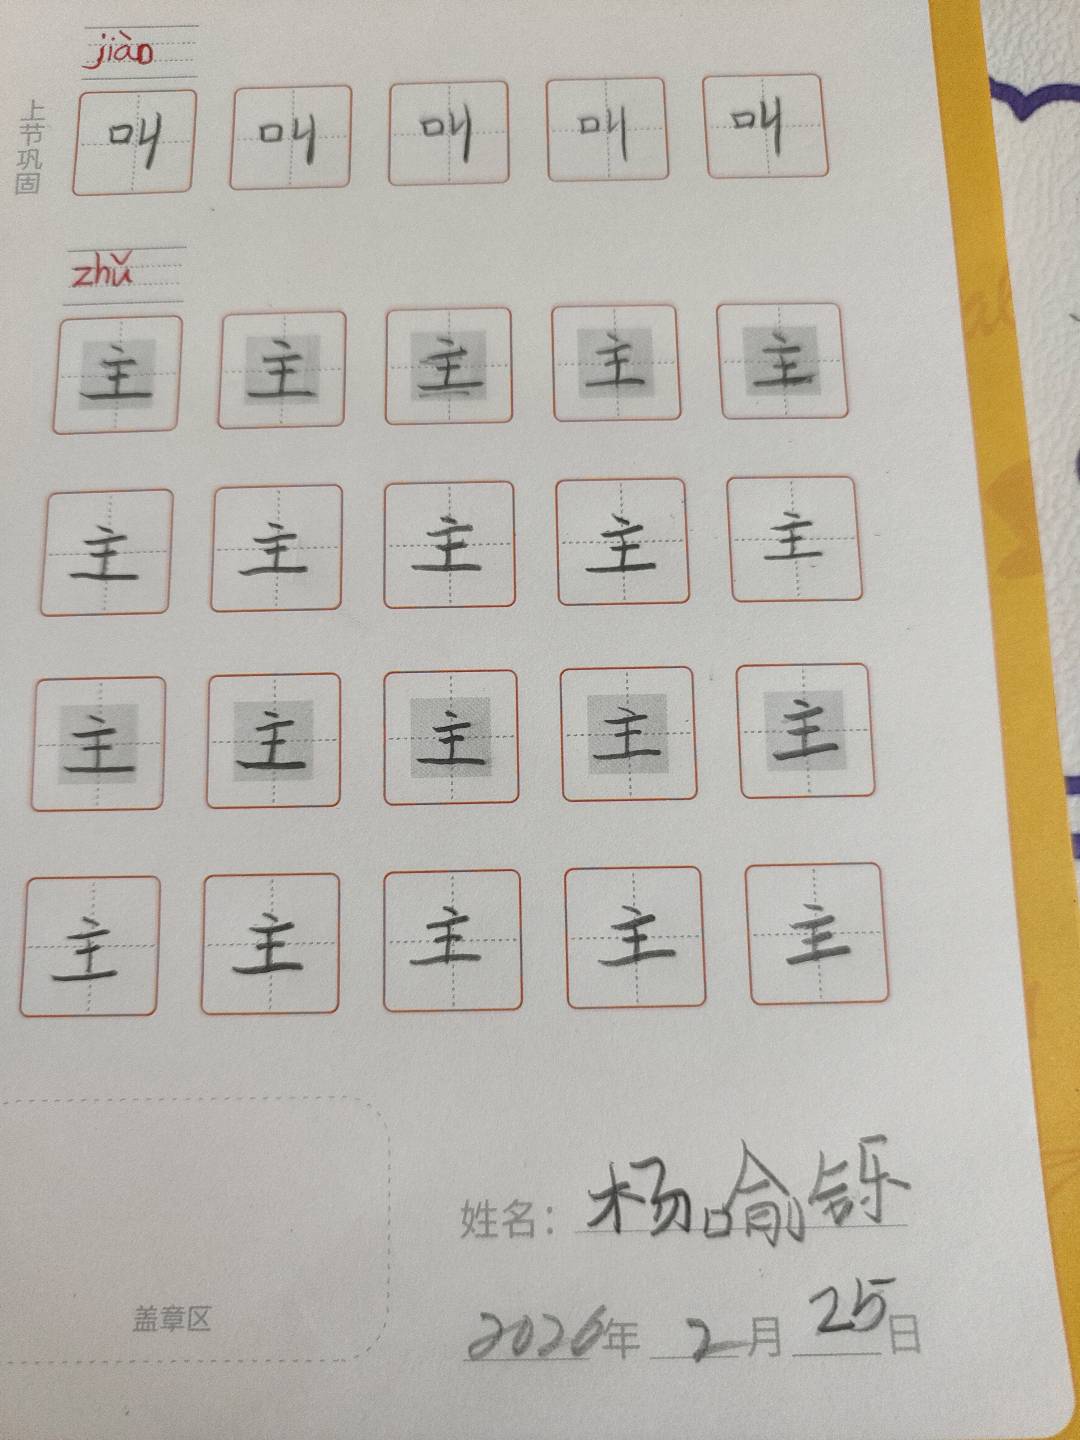 jiàn
上节巩固
叫 叫 叫 叫 叫
zhǔ
主 主 主 主 主
主 主 主 主 主
主 主 主 主 主
主 主 主 主 主
姓名：杨喻铄
2026年 2月 25日
盖章区